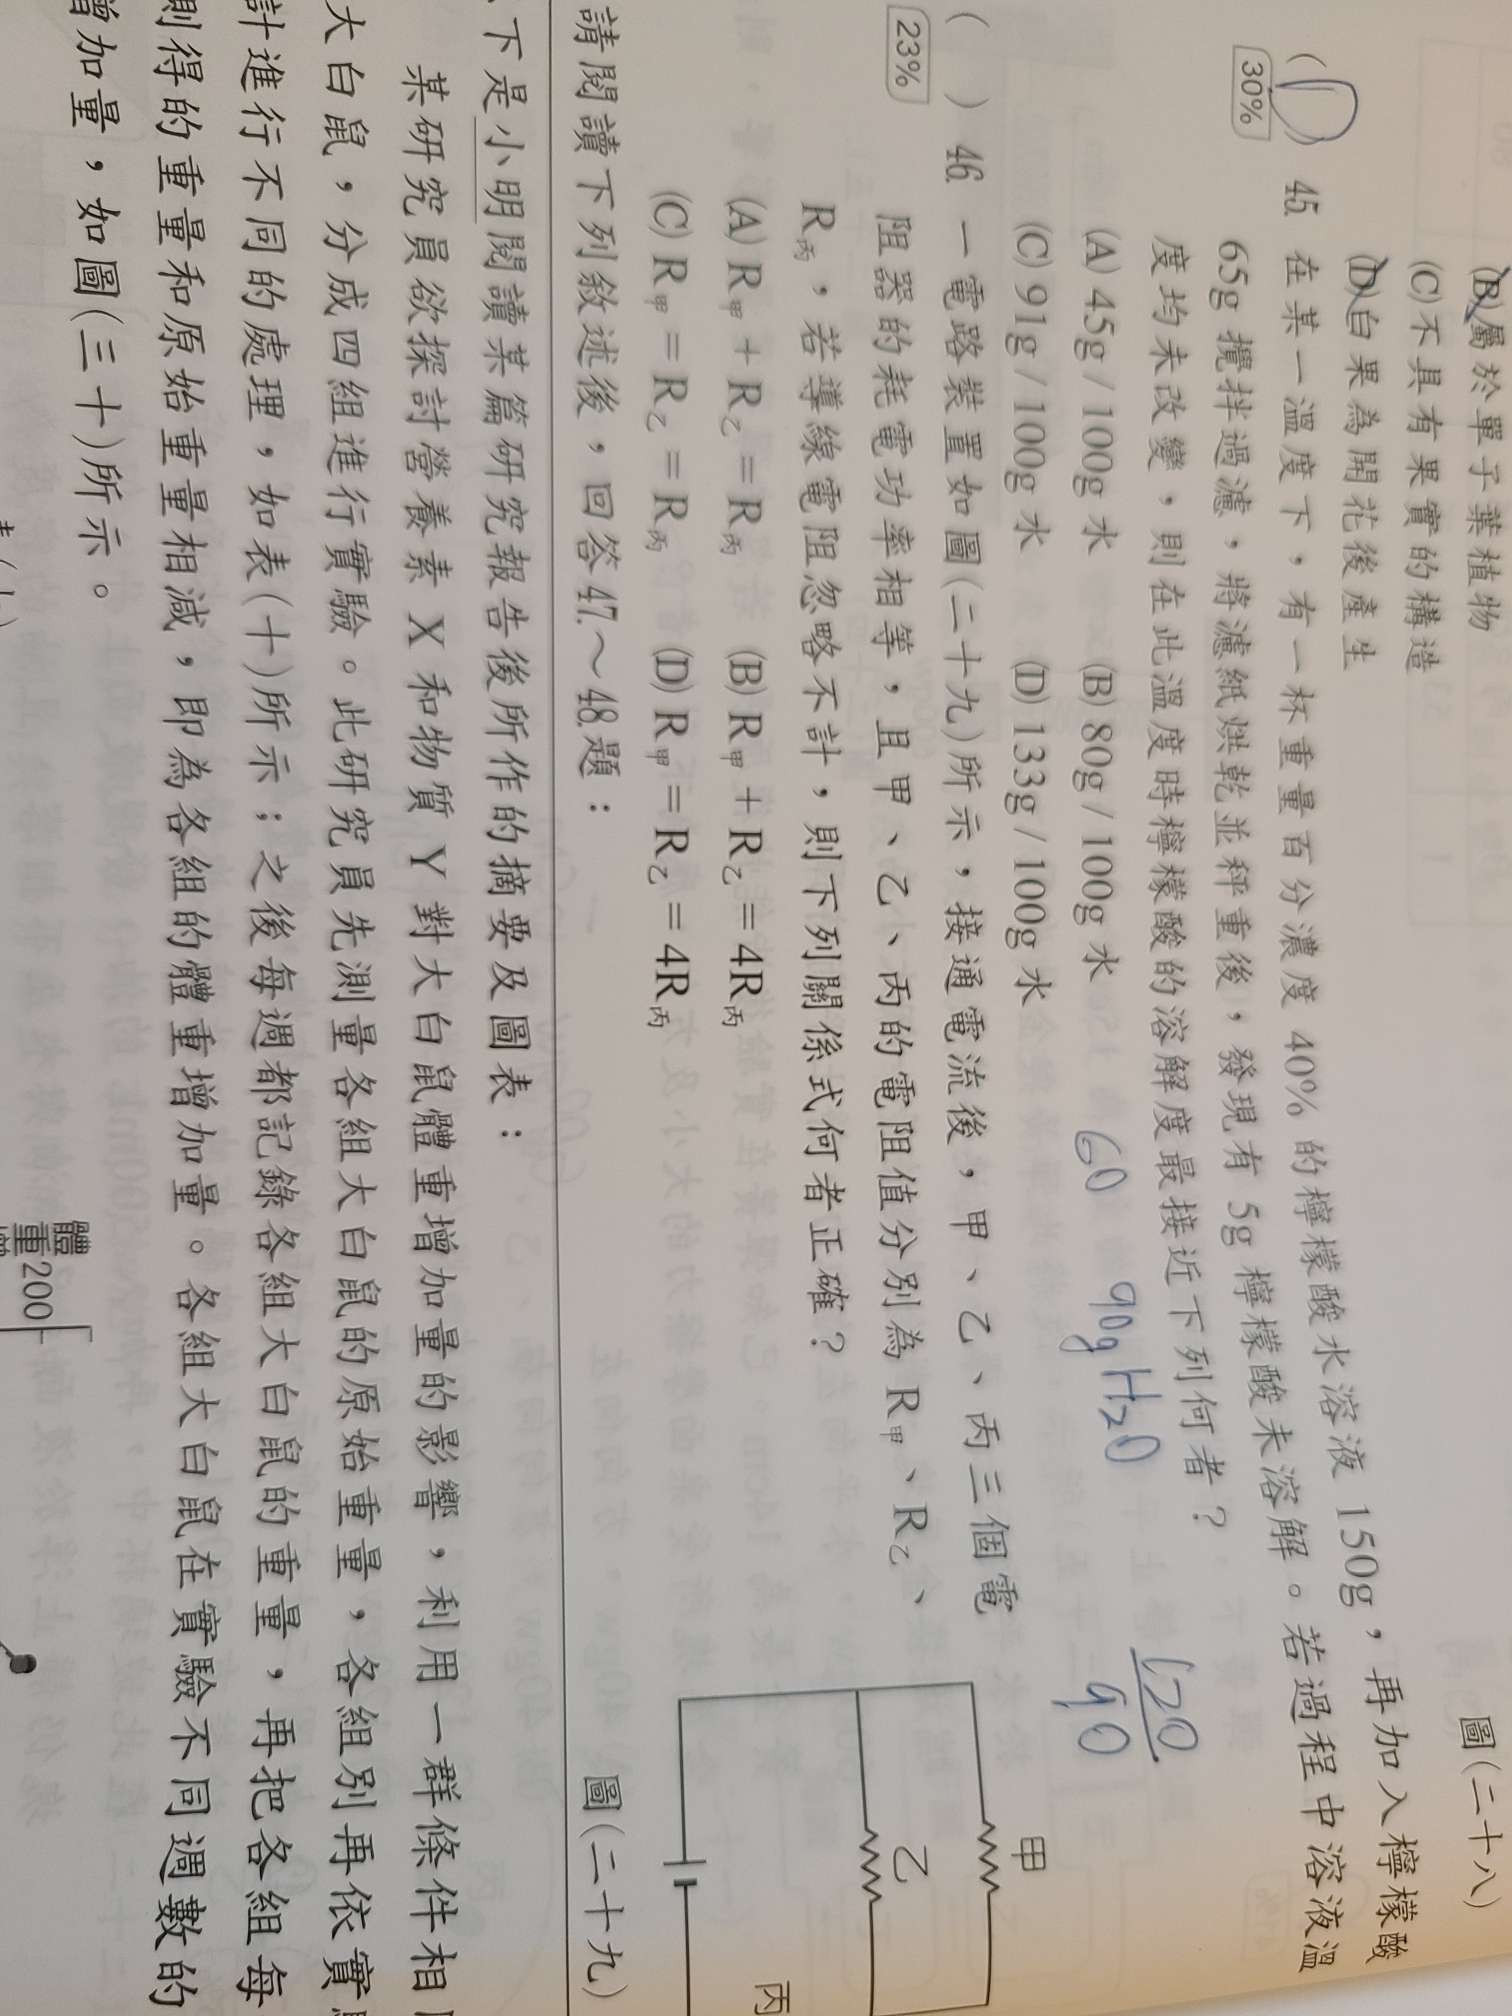 (B)屬於單子葉植物
(C)不具有果實的構造
(D)白果為開花後產生
圖(二十八)
(D) 45. 在某一溫度下，有一杯重量百分濃度 40% 的檸檬酸水溶液 150g，再加入檸檬酸
30%
65g 攪拌過濾，將濾紙烘乾並秤重後，發現有 5g 檸檬酸未溶解。若過程中溶液溫
度均未改變，則在此溫度時檸檬酸的溶解度最接近下列何者？
(A) 45g / 100g 水 (B) 80g / 100g 水
(C) 91g / 100g 水 (D) 133g / 100g 水
60 90g H₂O
120
90
( ) 46. 一電路裝置如圖(二十九)所示，接通電流後，甲、乙、丙三個電
23%
阻器的耗電功率相等，且甲、乙、丙的電阻值分別為 R甲、R乙、
R丙，若導線電阻忽略不計，則下列關係式何者正確？
(A) R甲 + R乙 = R丙 (B) R甲 + R乙 = 4R丙
(C) R甲 = R乙 = R丙 (D) R甲 = R乙 = 4R丙
甲
乙
丙
圖(二十九)
請閱讀下列敘述後，回答47.～48.題：
下是小明閱讀某篇研究報告後所作的摘要及圖表：
某研究員欲探討營養素 X 和物質 Y 對大白鼠體重增加量的影響，利用一群條件相
大白鼠，分成四組進行實驗。此研究員先測量各組大白鼠的原始重量，各組別再依實
計進行不同的處理，如表(十)所示；之後每週都記錄各組大白鼠的重量，再把各組每
測得的重量和原始重量相減，即為各組的體重增加量。各組大白鼠在實驗不同週數的
增加量，如圖(三十)所示。
體重
200